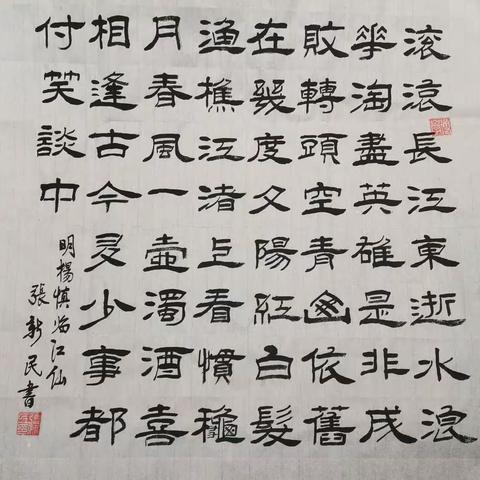 滚滚長江東逝水浪
華淘盡英雄是非成
敗轉頭空青山依舊
在幾度夕陽紅白髮
漁樵江渚上看慣穐
月春風一壺濁酒喜
相逢古今多少事都
付笑談中
明楊慎临江仙
張新民書